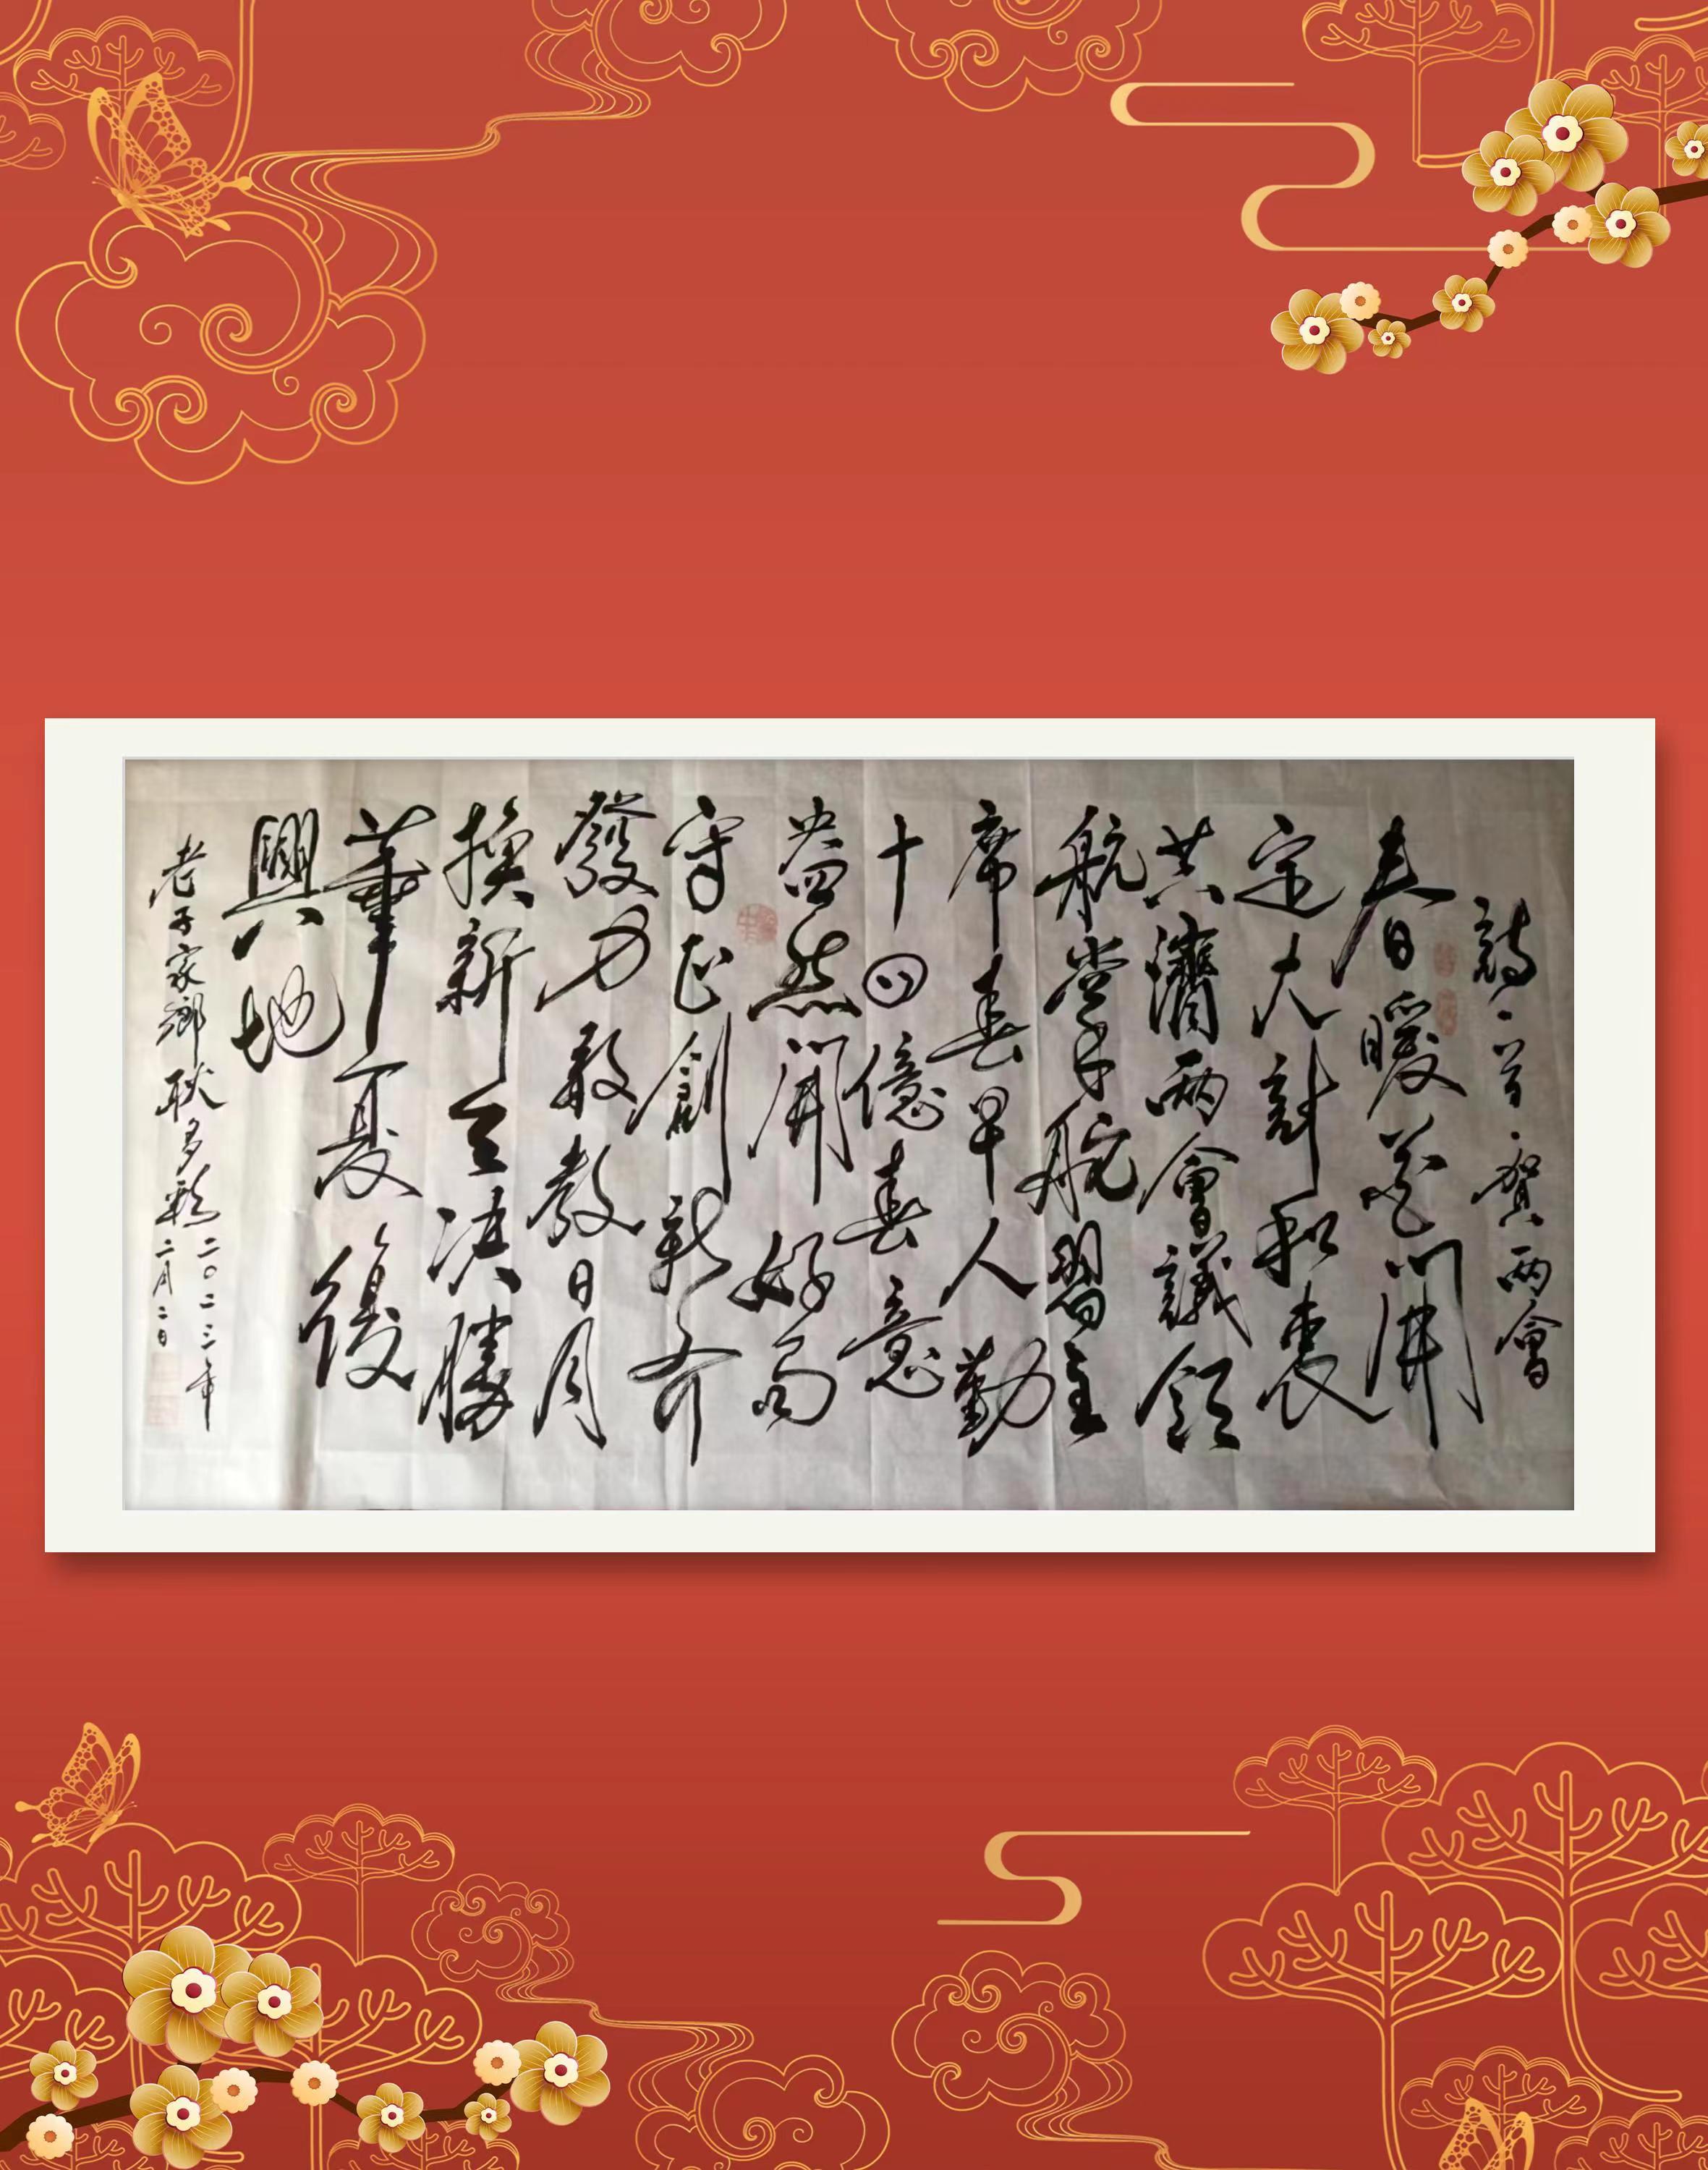 詩一首·賀兩會
春日暖花開
定大計和衷
共濟兩會議領
航掌手舵習主
席春早人勤
十四億春意
盎然開好局
守正創新齐
發力敢教日月
換新天决勝
華夏復
興地
老子家鄉耿多
二〇二三年
二月二日